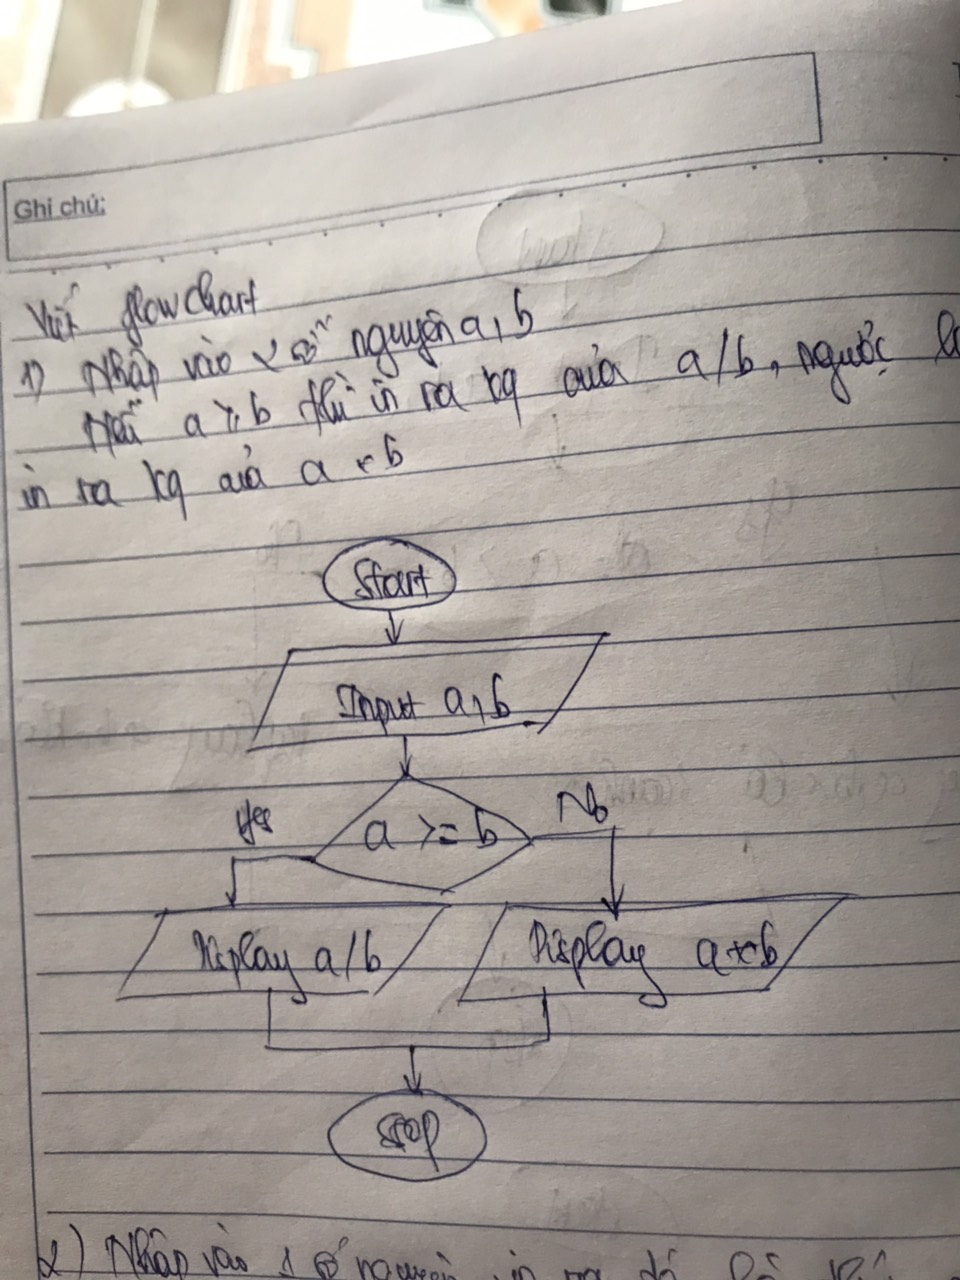 Ghi chú:
Viết flowchart
1) Nhập vào 2 số nguyên a, b
Nếu a >, b thì in ra kq của a/b, ngược
in ra kq của a * b
Start
Input a, b
a >= b
Yes
No
Display a/b
Display a * b
Stop
2) Nhập vào 1 số nguyên in ra